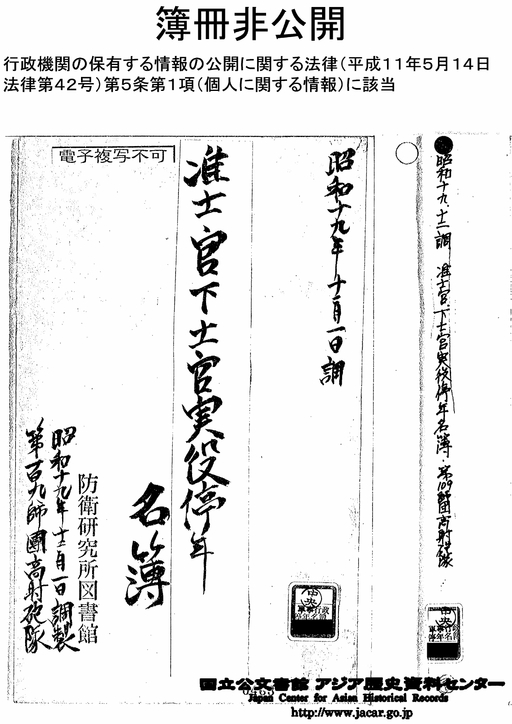 簿冊非公開
行政機関の保有する情報の公開に関する法律(平成11年5月14日
法律第42号)第5条第1項(個人に関する情報)に該当
昭和十九、十二調 准士官、下士官実役停年名簿 第109師団高射砲隊
昭和十九年十二月一日調
准士官下士官実役停年
名簿
電子複写不可
防衛研究所図書館
昭和十九年十二月一日調製
第百九師團高射砲隊
中央
国立公文書館 アジア歴史資料センター
Japan Center for Asian Historical Records
http://www.jacar.go.jp